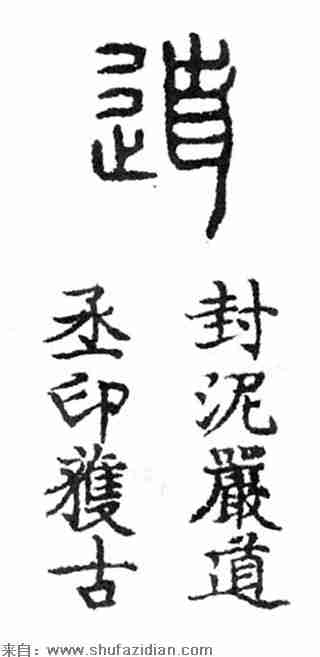 道
封泥嚴道
丞印獲古
来自：www.shufazidian.com